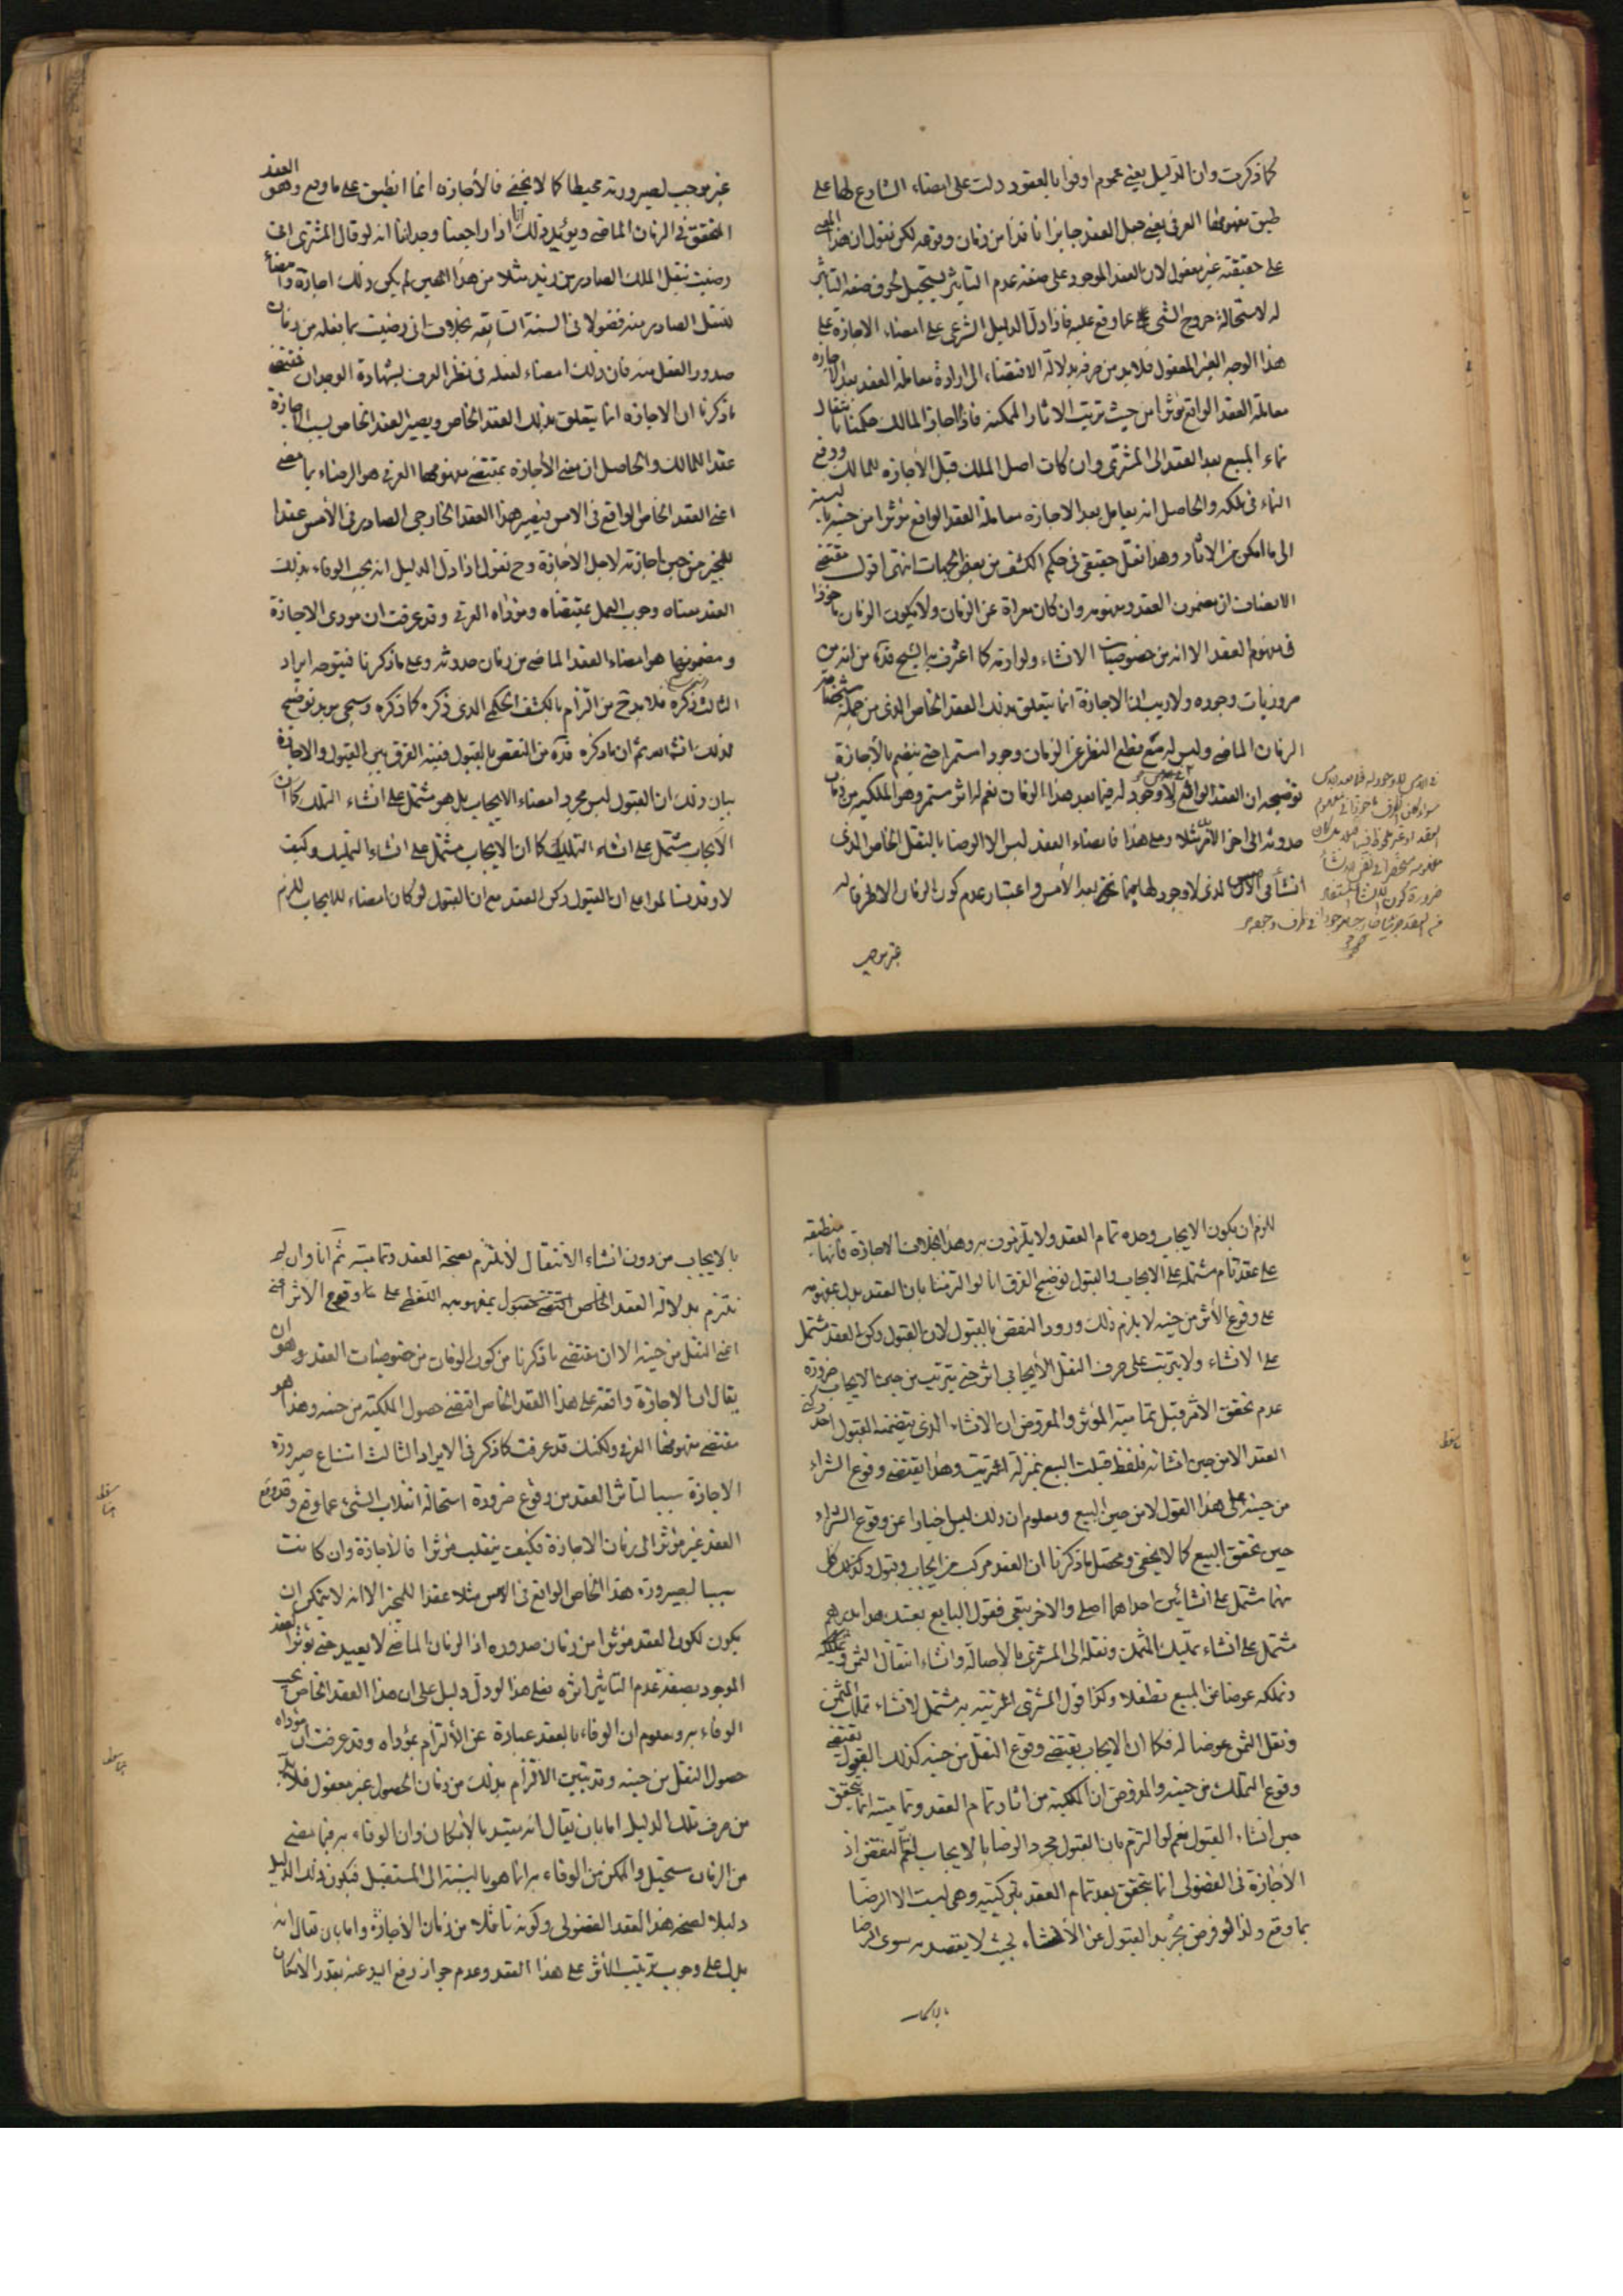 كما ذكرت وان الدليل يعني عموم اوفوا بالعقود دلت على امضاء الشارع لها على
طبق مفهومها العرفي يعني جعل العقد جايزا نافذا من زمان وقوعه لكن نقول ان هذا المعنى
على حقيقته غير معقول لان العقد الموجود على صفة عدم التاثير يستحيل لحوق صفة التاثير
له لاستحالة خروج الشئ عما وقع عليه فاذا دل الدليل الشرعي على امضاء الاجازة على
هذا الوجه الغير المعقول فلابد من صرفه بدلالة الاقتضاء الى ارادة معاملة العقد بعد الاجازة
معاملة العقد الواقع مؤثرا من حيث ترتيب الاثار الممكنة فاذا اجاز المالك حكمنا بانتقال
نماء المبيع بعد العقد الى المشتري وان كان اصل الملك قبل الاجازة للمالك ووقع
النماء في ملكه والحاصل انه يعامل بعد الاجازة معاملة العقد الواقع مؤثرا من حينه بالنسبة
الى ما امكن من الاثار وهذا نقل حقيقي في حكم الكشف من بعض الجهات انتهى اقول مقتضى
الانصاف ان مضمون العقد ومفهومه وان كان معراة عن الزمان ولا يكون الزمان ماخوذا
في مفهوم العقد الا انه من خصوصيات الانشاء ولوازمه كما اعترف به الشيخ قده من انه من
ضروريات وجوده ولا ريب ان الاجازة انما يتعلق بذلك العقد الخاص الذي من جملة مشخصاته
الزمان الماضي وليس له مع قطع النظر عن الزمان وجود استمرار حتى ينضم بالأجازة
توضيحه ان العقد الواقع لا وجود له فيما بعد هذا الزمان نعم له اثر مستمر وهو الملكيه من زمان
حدوثه الى اخر الامر مثلا وعلى هذا فامضاء العقد ليس الا الرضا بالنقل الخاص الذي
انشأ في الامس الذي لا وجود لها فيما نحن بعد الأمس واعتبار عدم كون الزمان الا ظرفا له
غير موجب
غير موجب لصيرورته محيطا كما لا يخفى فالأجازه انما انطبق على ما وقع وهو العقد
المتحقق في الزمان الماضي ويؤيد ذلك انا اذا راجعنا وجداننا انه لو قال المشتري اني
رضيت بنقل الملك الصادر من زيد مثلا من هذا الحين لم يكن ذلك اجازة وامضأ
للنقل الصادر منه فضولا في السنة السابقه بخلاف اني رضيت بما فعله من زمان
صدور العقل منه فان ذلك امضاء لفعله في نظر العرف بشهادة الوجدان فمقتضى
ما ذكرنا ان الاجازه انما يتعلق بذلك العقد الخاص ويصير العقد الخاص بسبب الاجازة
عقدا للمالك والحاصل ان معنى الأجازه بمقتضى مفهومها العرفي هو الرضاء بما مضى
اعني العقد الخاص الواقع في الامس فيصير هذا العقد الخارجي الصادر في الأمس عقدا
للمجيز من حين اجازته لاجل الأجازة وح نقول اذا دل الدليل انه يجب الوفاء بذلك
العقد معناه وجوب العمل بمقتضاه ومؤداه العرفي وقد عرفت ان مودى الاجازة
ومضمونها هو امضاء العقد الماضي من زمان حدوثه وعلى ما ذكرنا فيتوجه ايراد
الثالث وذكره فلا بد ح من التزام بالكشف الحكمي الذي ذكره كما ذكره وسيجئ مزيد توضيح
لذلك انشاء الله ثم ان ما ذكره قده من النقض بالقبول ففيه الفرق بين القبول والاجازة
بيان ذلك ان القبول ليس مجرد امضاء الايجاب بل هو مشتمل على انشاء التملك كما ان
الايجاب مشتمل على انشاء التمليك كما ان الايجاب مشتمل على انشاء التمليك وكيف
لا وقد بنا لموا مع ان القبول ركن العقد مع ان القبول لو كان امضاء للايجاب للزم
للزم ان يكون الايجاب وحده تمام العقد ولا يلتزمون به وهذا بخلاف الاجازة فانها منطبقه
على عقد تام مشتملة على الايجاب والقبول توضيح الفرق انا لو التزمنا بان العقد يدل بمفهومه
على وقوع الأثر من حينه لا يلزم ذلك ورود النقض بالقبول لان القبول ركن العقد مشتمل
على الانشاء ولا يترتب على صرف النقل الأيجابي اثر حتى يترتب من حين الايجاب ضرورة
عدم تحقق الاثر قبل تمامية المؤثر والمفروض ان الانشاء الذي يتضمنه القبول احد ركني
العقد الا من حين انشائه فلفظ قبلت البيع بمنزلة اشتريت وهذا يقتضي وقوع الشراء
من حينه على هذا القول لا من حين البيع ومعلوم ان ذلك ليس اخبارا عن وقوع الشراء
حين تحقق البيع كما لا يخفى ومحصل ما ذكرنا ان العقد مركب من ايجاب وقبول وكذلك كل
منهما مشتمل على انشائين احداهما اصلي والاخر تبعي فقول البايع بعتك هذا بدرهم
مشتمل على انشاء تمليك المثمن ونقله الى المشتري بالأصالة وانشاء انتقال الثمن وتملكه
وتملكه عوضا عن المبيع تطفلا وكذا قول المشتري اشتريته به مشتمل لانشاء تملك المثمن
ونقل الثمن عوضا له فكما ان الايجاب يقتضي وقوع النقل من حينه كذلك القبول يقتضي
وقوع التملك من حينه والمفروض ان الملكية من اثار تمام العقد وتماميته انما يتحقق
حين انشاء القبول نعم لو التزم بان القبول مجرد الرضا بالايجاب لتم النقض اذ
الأجازة في الفضولي انما يتحقق بعد تمام العقد بركنيه وهي ليست الا الرضا
بما وقع ولذا لو فرض تجريد القبول عن الأنشاء بحيث لا يقصد به سوى الرضا
بالايجاب
بالايجاب من دون انشاء الانتقال لا نلتزم بصحة العقد وتماميته ثم انا وان لم
نلتزم بدلالة العقد الخاص بمفهومه اللفظي على وقوع الأثر
اعني النقل من حينه الا ان مقتضى ما ذكرنا من كون الزمان من خصوصيات العقد وهو ان
يقال ان الاجازة واقعة على هذا العقد الخاص اقتضى حصول الملكية من حينه وهذا هو
مقتضى مفهومها العرفي ولكنك قد عرفت كما ذكر في الايراد الثالث امتناع صيرورة
الاجازة سببا لتاثر العقد من وقوع ضرورة استحالة انقلاب الشئ عما وقع وقد وقع
العقد غير مؤثر الى زمان الاجازة فكيف ينقلب مؤثرا فالاجازة وان كانت
سببا لصيرورة هذا الخاص الواقع في الامس مثلا عقدا للمجيز الا انه لا يمكن ان
يكون لكون العقد مؤثرا من زمان صدوره اذ الزمان الماضي لا يعيد حتى يؤثر العقد
الموجود بصفة عدم التاثير اثره فعلى هذا لو دل دليل على ان هذا العقد الخاص يجب
الوفاء به ومعلوم ان الوفاء بالعقد عبارة عن الألتزام بمؤداه وقد عرفت ان مؤداه
حصول النقل من حينه وقد تبين الالتزام بذلك من زمان الحصول غير معقول فلا بد
من صرف تلك الدليل اما بان يقال انه مقيد بالامكان وان الوفاء به فيما مضى
من الزمان مستحيل والممكن من الوفاء به انما هو بالنسبة الى المستقبل فيكون ذلك الدليل
دليلا لصحة هذا العقد الفضولي وكونه ناقلا من زمان الأجازة واما بان يقال انه
يدل على وجوب ترتيب الأثر على هذا العقد وعدم جواز رفع اليد عنه بقدر الامكان